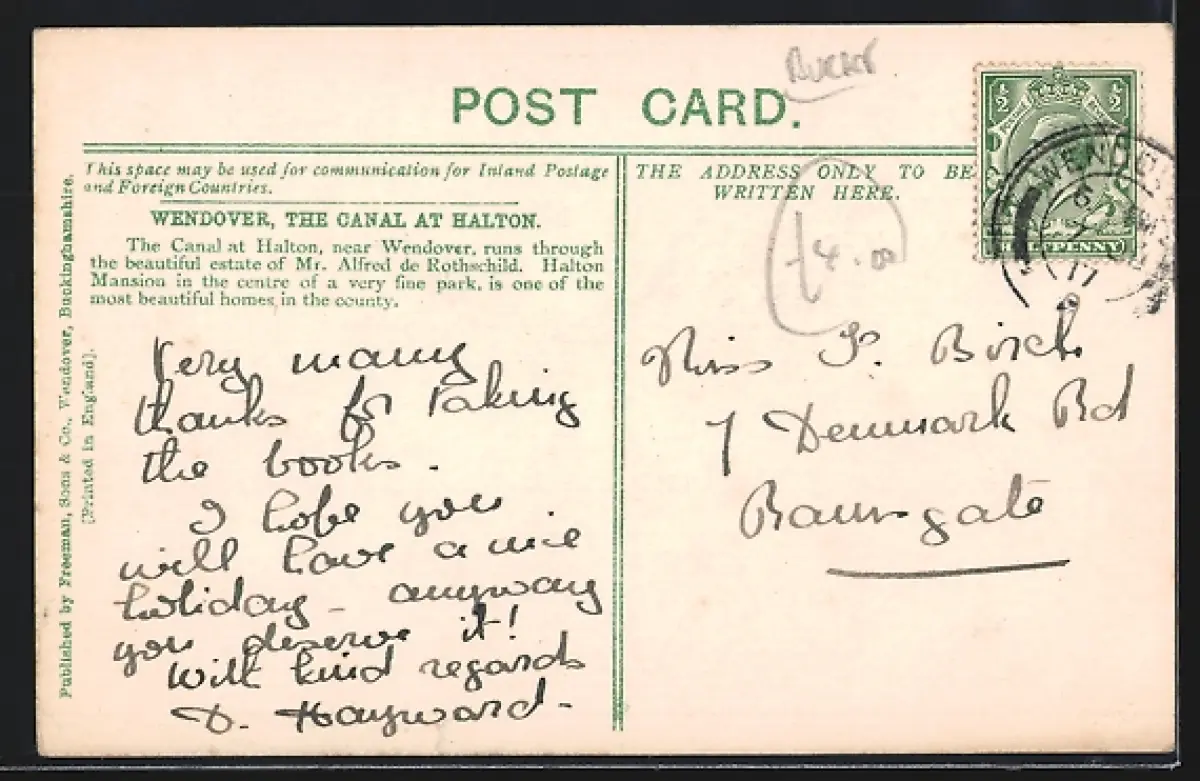 BUCKS
POST CARD.
This space may be used for communication for Inland Postage
and Foreign Countries.
WENDOVER, THE CANAL AT HALTON.
The Canal at Halton, near Wendover, runs through
the beautiful estate of Mr. Alfred de Rothschild. Halton
Mansion in the centre of a very fine park, is one of the
most beautiful homes in the county.
Very many
thanks for taking
the books.
I hope you
will have a nice
holiday - anyway
you deserve it!
With kind regards
D. Hayward.
Published by Freeman, Sons & Co., Wendover, Buckinghamshire.
[Printed in England].
THE ADDRESS ONLY TO BE
WRITTEN HERE.
4.00
½ ½
WENDOV
6
17
PENNY
Miss F. Birch
7 Denmark Rd
Ramsgate